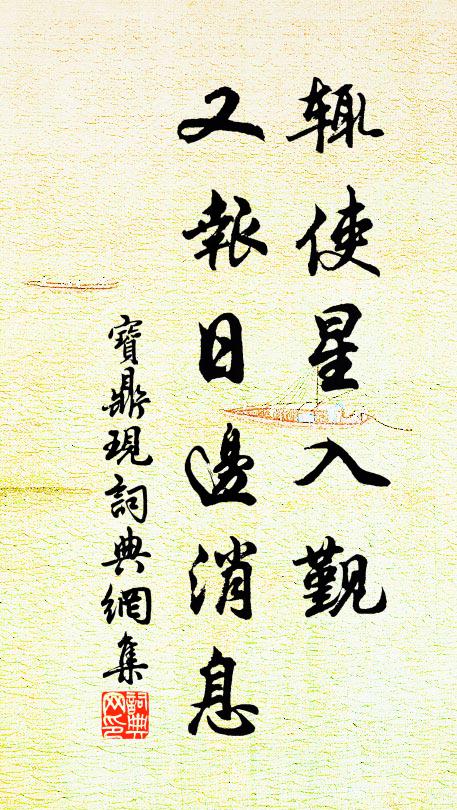 輒使星入觐
又報日邊消息
寶鼎現詞典網集
詞典網印